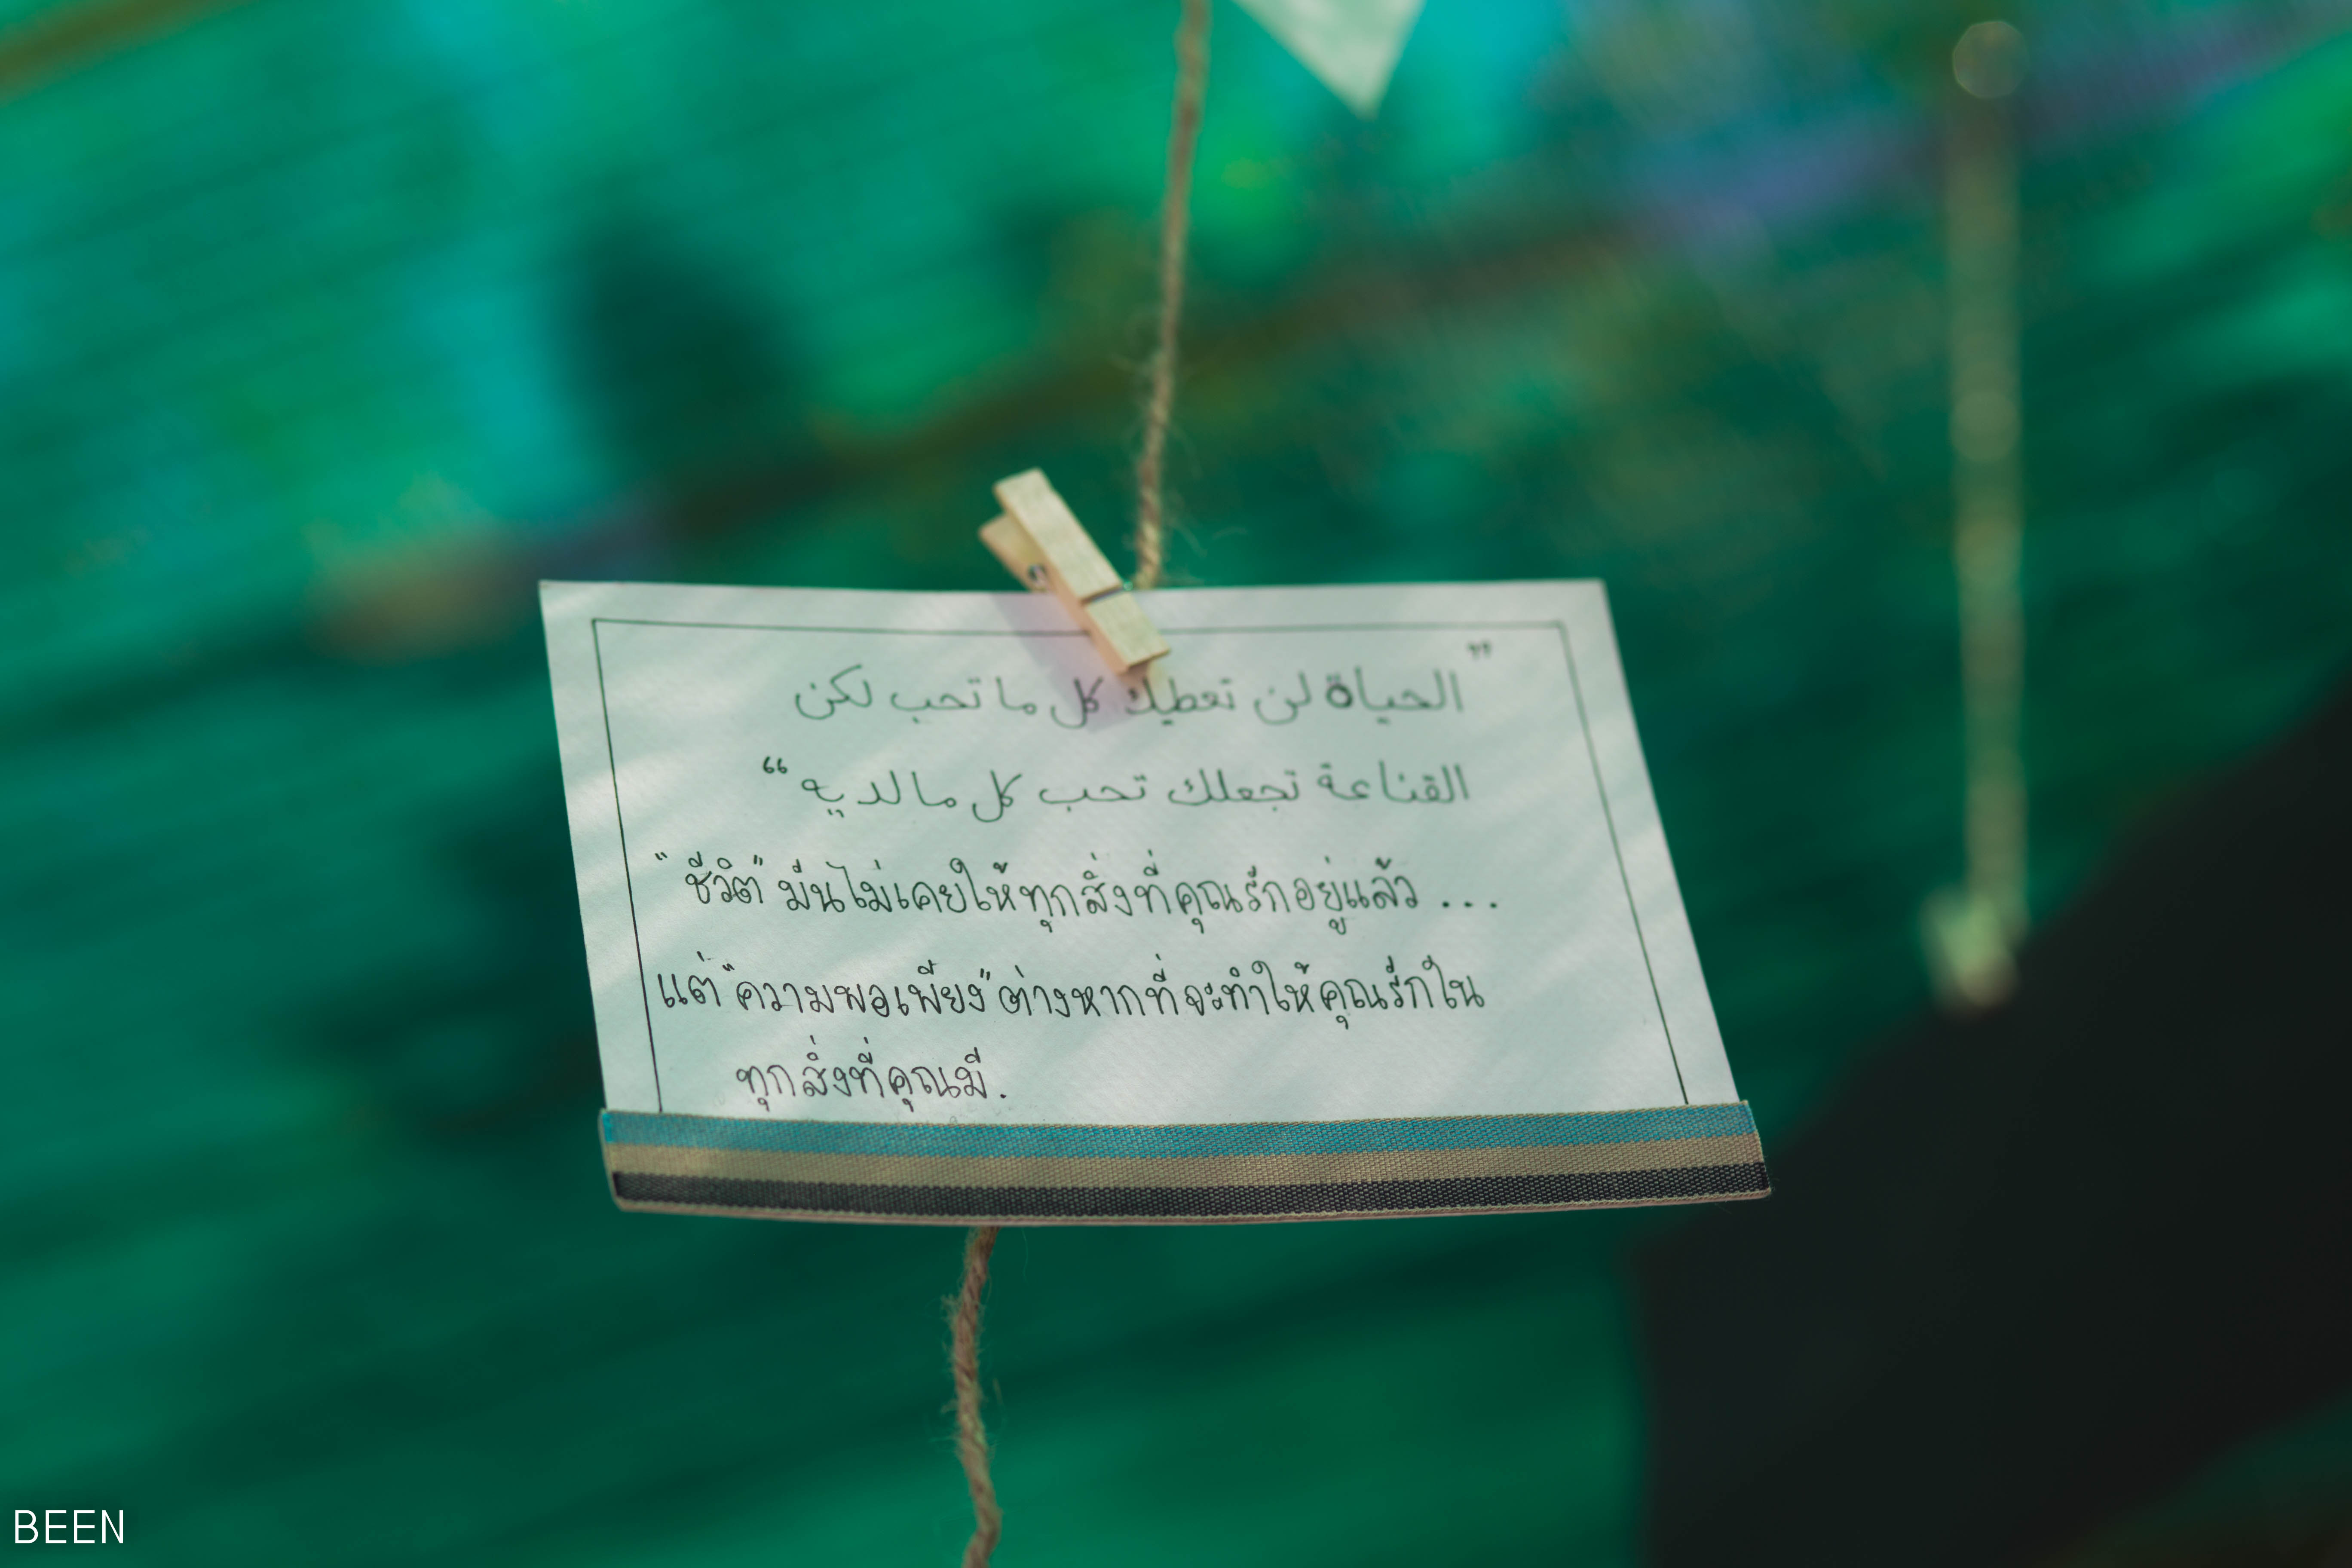 ” الحياة لن تعطيك كل ما تحب لكن
القناعة تجعلك تحب كل ما لديه “
“ชีวิต” มันไม่เคยให้ทุกสิ่งที่คุณรักอยู่แล้ว ...
แต่ “ความพอเพียง” ต่างหากที่จะทำให้คุณรักใน
ทุกสิ่งที่คุณมี.
BEEN